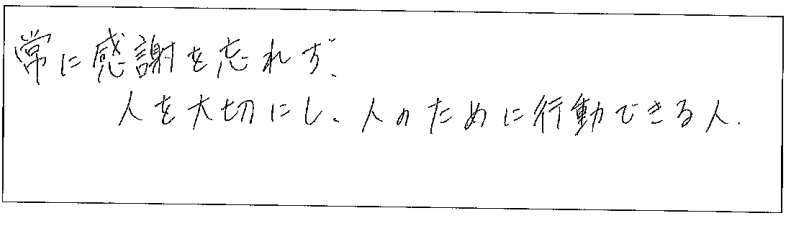 常に感謝を忘れず、
人を大切にし、人のために行動できる人.